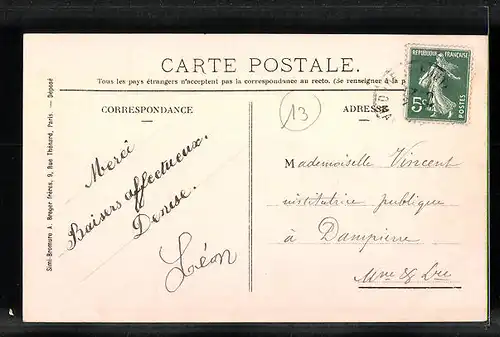 CARTE POSTALE.
Tous les pays étrangers n'acceptent pas la correspondance au recto. (Se renseigner à la p
CORRESPONDANCE
ADRESSE
13
REPUBLIQUE FRANÇAISE
5c
POSTES
Simi-Bromure A. Breger frères, 9, Rue Thénard, Paris. — Déposé
Merci
Baisers affectueux.
Denise.
Léon
Mademoiselle Vincent
institutrice publique
à Dampierre
Mne & Lre